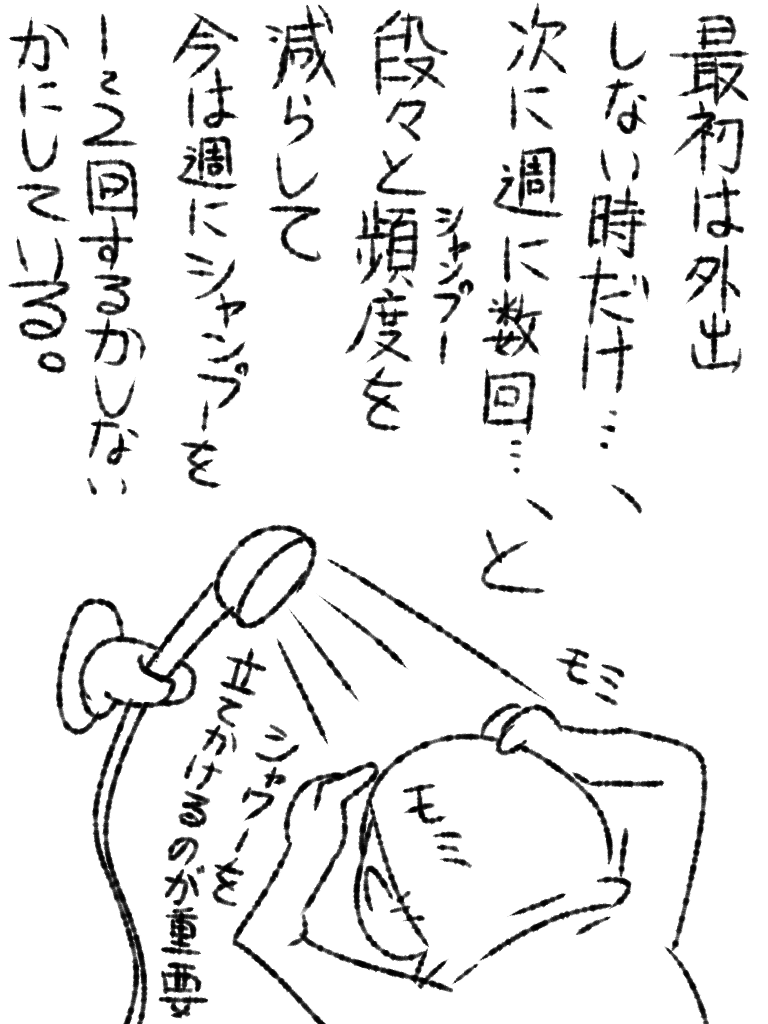 最初は外出
しない時だけ…、
次に週に数回…、と
シャンプー
段々と頻度を
減らして
今は週にシャンプーを
1~2回するかしない
かにしている。
モミ
モミ
シャワーを
立てかけるのが重要